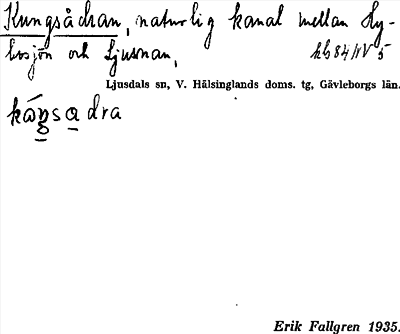 Kungsådran, naturlig kanal mellan Hy-
bosjön och Ljusnan,
Ljusdals sn, V. Hälsinglands doms. tg, Gävleborgs län.
Erik Fallgren 1935.